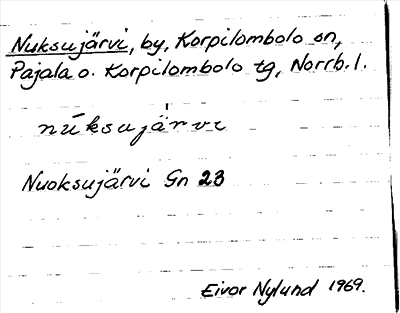 Nuksujärvi, by, Korpilombolo sn,
Pajala o. Korpilombolo tg, Norrb. l.
núksujärvi
Nuoksujärvi Gn 23
Eivor Nylund 1969.